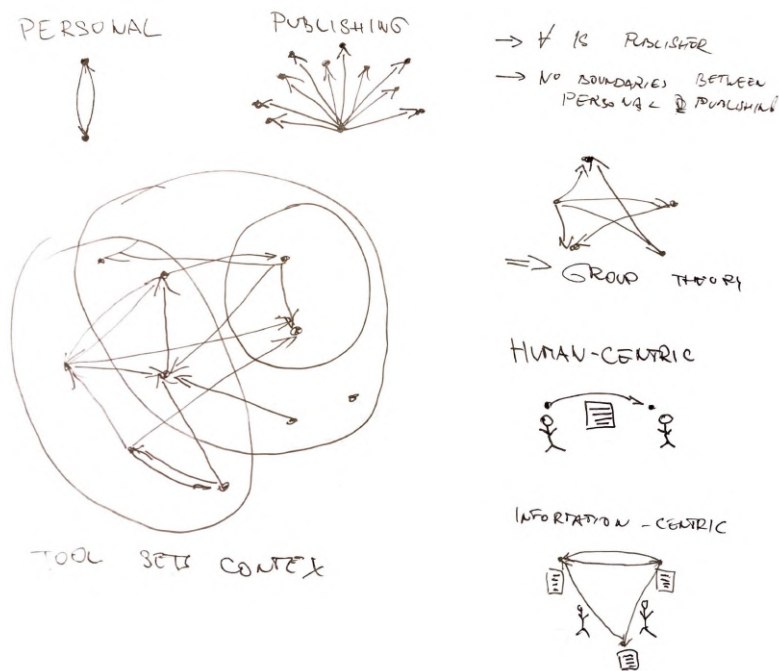 PERSONAL
PUBLISHING
→ ∀ IS PUBLISHER
→ NO BOUNDARIES BETWEEN
PERSONAL & PUBLISHING
⇒ GROUP THEORY
HUMAN-CENTRIC
INFORTATION-CENTRIC
TOOL SETS CONTEX